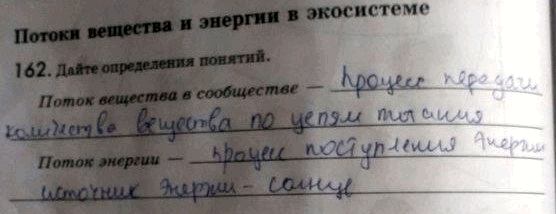 Потоки вещества и энергии в экосистеме
162. Дайте определения понятий.
Поток вещества в сообществе — процесс передачи
количества вещества по цепям питания
Поток энергии — процесс поступления энергии
источник энергии - солнце